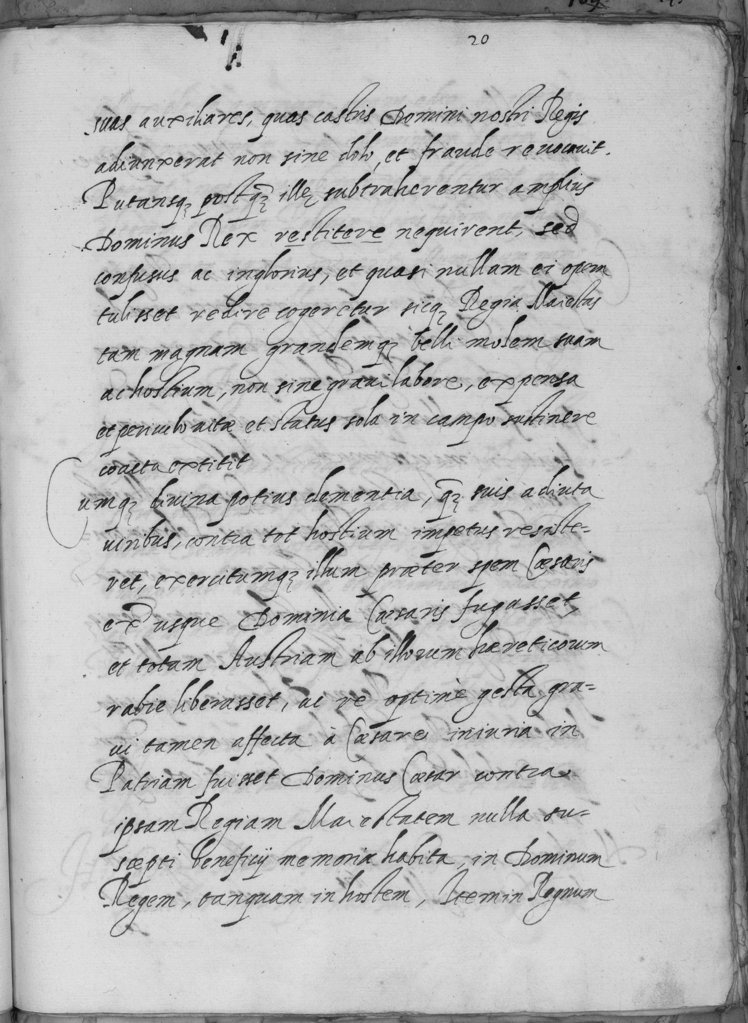 20
suas auxiliares, quas castris Domini nostri Regis
adiunxerat non sine dolo, et fraude reuocauit.
Putansq; postq̃; illę subtraherentur amplius
Dominus Rex restitere nequirent, sed
confusus ac inglorius, et quasi nullam ei opem
tulisset redire cogeretur sicq; Regia Maiestas
tam magnam grandemq; belli molem suam
ac hostium, non sine graui labore, expensa
et periculo uitæ et status sola in campo sustinere
coacta extitit
Cumq; diuina potius clementia, q̃; suis adiuta
uiribus, contra tot hostium impetus resiste-
ret, exercitumq; illum præter spem Cæsaris
ex usque Dominia Cæsaris fugasset,
et totam Austriam ab illorum hæreticorum
rabie liberasset, ac re optimè gesta gra-
ui tamen affecta à Cæsare iniuria in
Patriam fuisset Dominus Cæsar contra
ipsam Regiam Maiestatem nulla su-
scepti beneficij memoria habita, in Dominum
Regem, tanquam in hostem, Item in Regnum